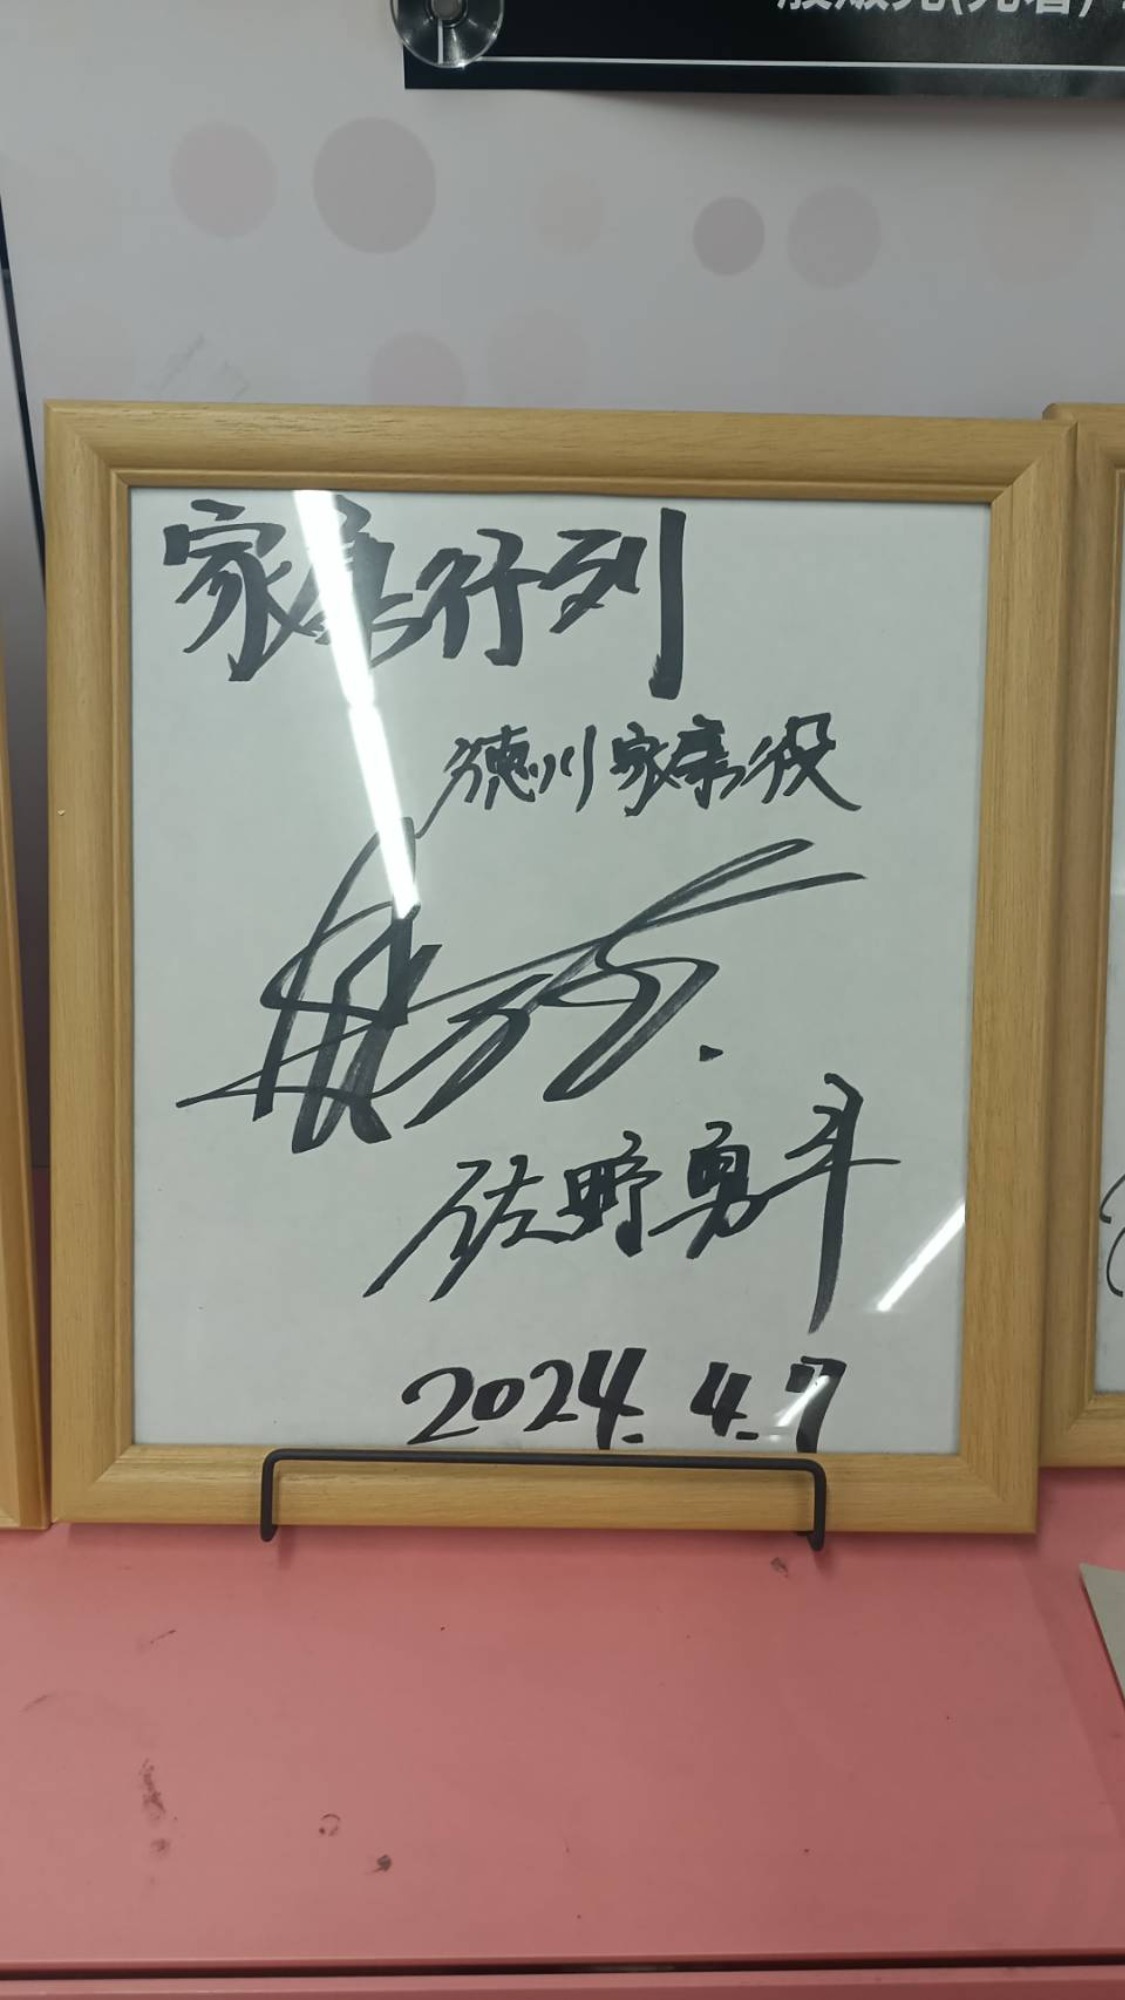 家康行列
徳川家康役
佐野勇斗
2024.4.7